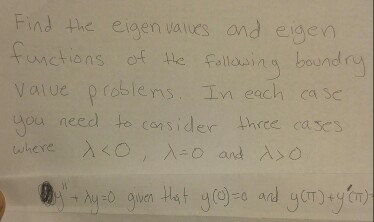 Find the eigenvalues and eigen
functions of the following boundry
value problems. In each case
you need to consider three cases
where λ<0, λ=0 and λ>0
y''+λy=0 given that y(0)=0 and y(π)+y'(π)=